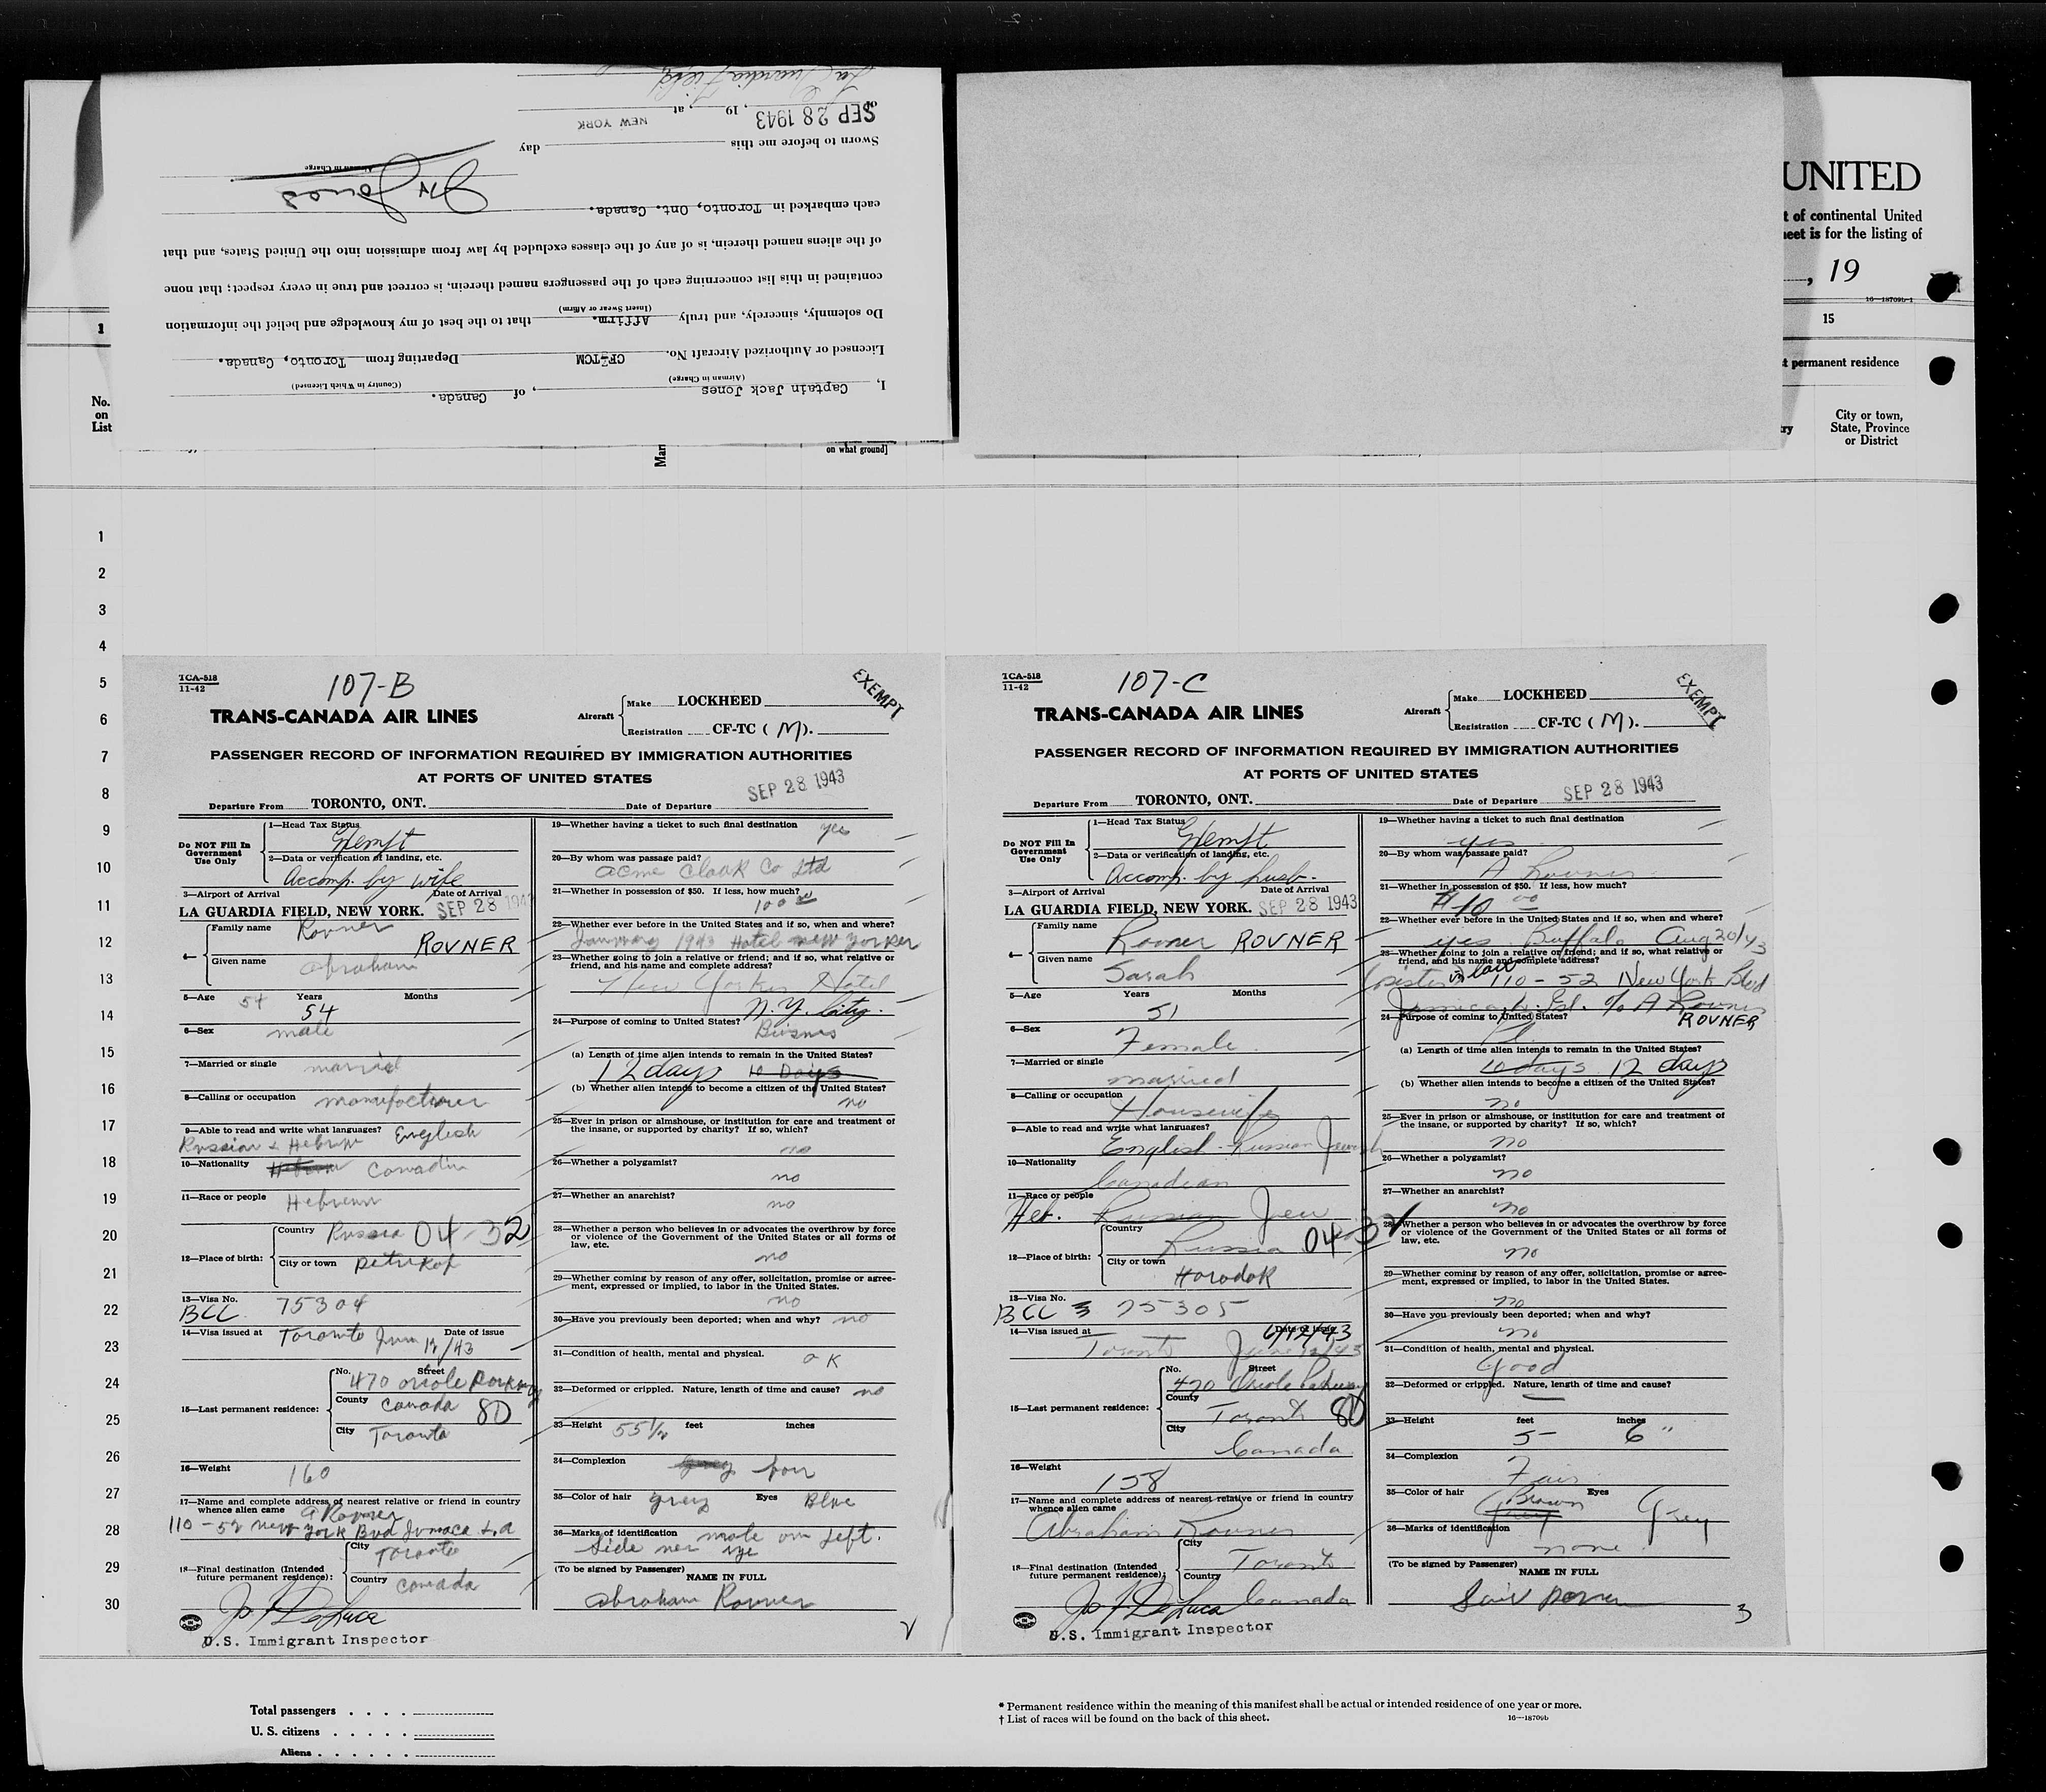 La Guardia Field
of SEP 28 1943, 19 , at NEW YORK
Sworn to before me this day
Airman in Charge
J N Jones
each embarked in Toronto, Ont. Canada.
of the aliens named therein, is of any of the classes excluded by law from admission into the United States, and that
contained in this list concerning each of the passengers named therein, is correct and true in every respect; that none
(Insert Swear or Affirm)
Do solemnly, sincerely, and truly Affirm. that to the best of my knowledge and belief the information
Licensed or Authorized Aircraft No. CF-TCM Departing from Toronto, Canada.
(Airman in Charge) (Country in Which Licensed)
I, Captain Jack Jones , of Canada.
UNITED
t of continental United
eet is for the listing of
, 19
16—18709b-1
1
15
t permanent residence
No.
on
List
Mar
on what ground]
ry
City or town,
State, Province
or District
1
2
3
4
5
6
7
8
9
10
11
12
13
14
15
16
17
18
19
20
21
22
23
24
25
26
27
28
29
30
TCA-518
11-42
107-B
EXEMPT
TRANS-CANADA AIR LINES
Aircraft
Make LOCKHEED
Registration CF-TC ( M ).
PASSENGER RECORD OF INFORMATION REQUIRED BY IMMIGRATION AUTHORITIES
AT PORTS OF UNITED STATES
Departure From TORONTO, ONT. Date of Departure SEP 28 1943
Do NOT Fill In
Government
Use Only
1—Head Tax Status
Exempt
2—Data or verification of landing, etc.
Accomp. by wife
3—Airport of Arrival Date of Arrival
LA GUARDIA FIELD, NEW YORK. SEP 28 1943
4—
Family name Rovner
ROVNER
Given name Abraham
5—Age 54 Years Months
54
6—Sex male
7—Married or single married
8—Calling or occupation manufacturer
9—Able to read and write what languages? English
Russian & Hebrew
10—Nationality Hebrew Canadin
11—Race or people Hebrew
12—Place of birth:
Country Russia 04-32
City or town Petrikof
13—Visa No. 75304
BCC
14—Visa issued at Toronto Date of issue
June 12/43
15—Last permanent residence:
No. Street
470 oriole Parkway
County Canada 80
City Toronto
16—Weight 160
17—Name and complete address of nearest relative or friend in country
whence alien came A Rovner
110-52 New York Bvd Jamaca L.A
18—Final destination (Intended
future permanent residence):
City Toronto
Country Canada
Jos F DeLuca
U.S. Immigrant Inspector
19—Whether having a ticket to such final destination yes
20—By whom was passage paid?
Acme Cloak Co Ltd
21—Whether in possession of $50. If less, how much?
100 00
22—Whether ever before in the United States and if so, when and where?
January 1943 Hotel new yorker
23—Whether going to join a relative or friend; and if so, what relative or
friend, and his name and complete address?
New Yorker Hotel
N.Y. City.
24—Purpose of coming to United States? Buisnes
(a) Length of time alien intends to remain in the United States?
12 days 10 Days
(b) Whether alien intends to become a citizen of the United States?
no
25—Ever in prison or almshouse, or institution for care and treatment of
the insane, or supported by charity? If so, which?
no
26—Whether a polygamist?
no
27—Whether an anarchist?
no
28—Whether a person who believes in or advocates the overthrow by force
or violence of the Government of the United States or all forms of
law, etc.
no
29—Whether coming by reason of any offer, solicitation, promise or agree-
ment, expressed or implied, to labor in the United States.
no
30—Have you previously been deported; when and why? no
31—Condition of health, mental and physical. OK
32—Deformed or crippled. Nature, length of time and cause? no
33—Height 55 1/2 feet inches
34—Complexion
35—Color of hair grey Eyes Blue
36—Marks of identification mole on Left.
Side ner eye
(To be signed by Passenger)
NAME IN FULL
Abraham Rovner
TCA-518
11-42
107-C
EXEMPT
TRANS-CANADA AIR LINES
Aircraft
Make LOCKHEED
Registration CF-TC ( M ).
PASSENGER RECORD OF INFORMATION REQUIRED BY IMMIGRATION AUTHORITIES
AT PORTS OF UNITED STATES
Departure From TORONTO, ONT. Date of Departure SEP 28 1943
Do NOT Fill In
Government
Use Only
1—Head Tax Status
Exempt
2—Data or verification of landing, etc.
Accomp. by husb.
3—Airport of Arrival Date of Arrival
LA GUARDIA FIELD, NEW YORK. SEP 28 1943
4—
Family name
Rovner ROVNER
Given name
Sarah
5—Age Years Months
51
6—Sex
Female
7—Married or single
married
8—Calling or occupation
Housewife
9—Able to read and write what languages?
English - Russian Jewish
10—Nationality
Canadian
11—Race or people
Heb. Russian Jew
12—Place of birth:
Country
Russia 04-32
City or town
Horodok
13—Visa No.
BCC 75305
14—Visa issued at Date of issue
6/12/43
Toronto June 12/43
15—Last permanent residence:
No. Street
470 Oriole Parkway
County
Toronto 80
City
Canada
16—Weight
158
17—Name and complete address of nearest relative or friend in country
whence alien came
Abraham Rovner
18—Final destination (Intended
future permanent residence):
City
Toronto
Country
Canada
Jos F DeLuca
U.S. Immigrant Inspector
19—Whether having a ticket to such final destination
yes
20—By whom was passage paid?
A Rovner
21—Whether in possession of $50. If less, how much?
$10 00
22—Whether ever before in the United States and if so, when and where?
yes Buffalo Aug 20/43
23—Whether going to join a relative or friend; and if so, what relative or
friend, and his name and complete address?
sister in law 110-52 New York Blvd
Jamaica L. Isl. c/o A Rovner
ROVNER
24—Purpose of coming to United States?
(a) Length of time alien intends to remain in the United States?
10 days 12 days
(b) Whether alien intends to become a citizen of the United States?
no
25—Ever in prison or almshouse, or institution for care and treatment of
the insane, or supported by charity? If so, which?
no
26—Whether a polygamist?
no
27—Whether an anarchist?
no
28—Whether a person who believes in or advocates the overthrow by force
or violence of the Government of the United States or all forms of
law, etc.
no
29—Whether coming by reason of any offer, solicitation, promise or agree-
ment, expressed or implied, to labor in the United States.
no
30—Have you previously been deported; when and why?
no
31—Condition of health, mental and physical.
Good
32—Deformed or crippled. Nature, length of time and cause?
—
33—Height feet inches
5 6"
34—Complexion
Fair
35—Color of hair Eyes
Brown Grey
36—Marks of identification
none
(To be signed by Passenger)
NAME IN FULL
3
Total passengers . . . .
U. S. citizens . . . . .
Aliens . . . . . .
* Permanent residence within the meaning of this manifest shall be actual or intended residence of one year or more.
† List of races will be found on the back of this sheet.
16—18709b